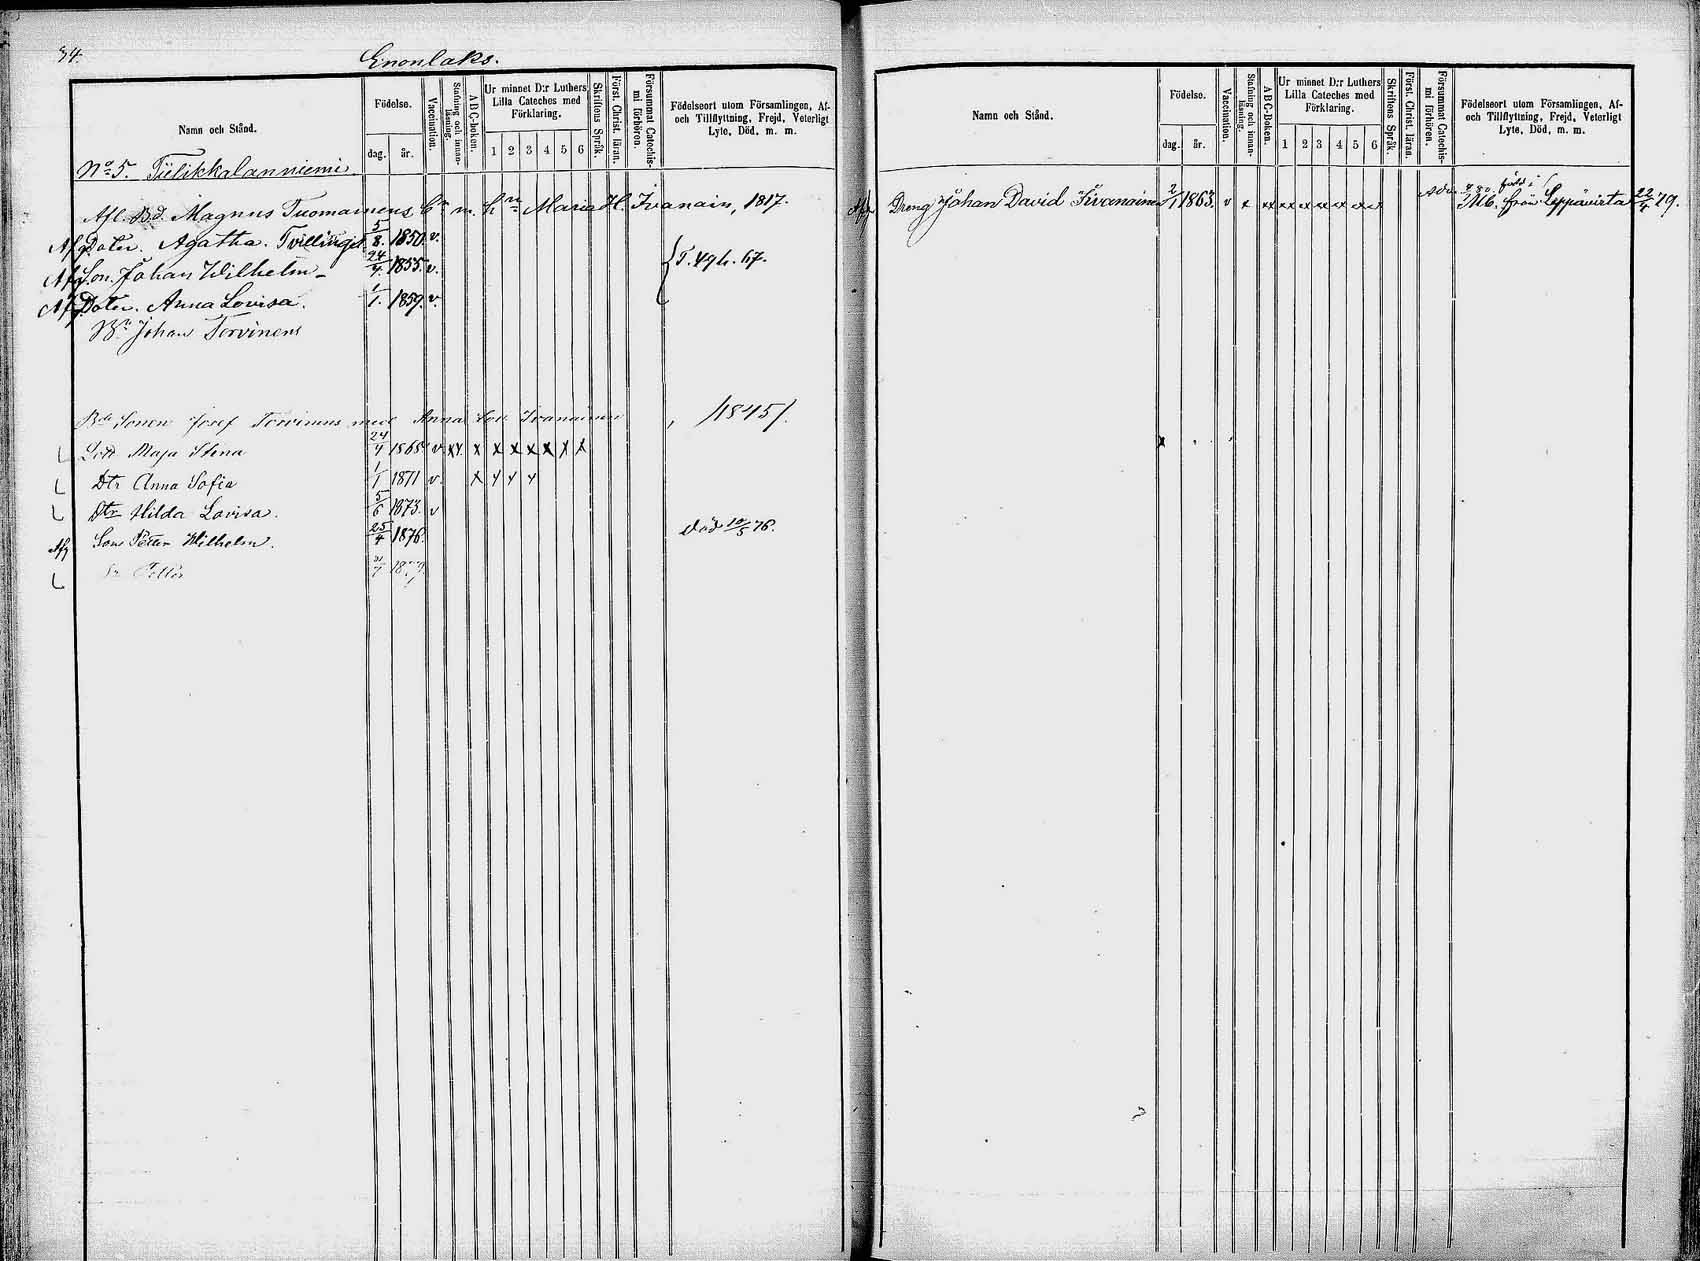 34.
Enonlaks.
Namn och Stånd.
Födelse.
dag. år.
Vaccination.
Stafning och innanläsning.
ABC-boken.
Ur minnet D:r Luthers Lilla Cateches med Förklaring.
1 2 3 4 5 6
Skriftens Språk.
Först. Christ. läran.
Försummat Catechismi förhören.
Födelseort utom Församlingen, Af- och Tillflyttning, Frejd, Veterligt Lyte, Död, m. m.
No 5. Tielikkalanniemi
Afl. Bd. Magnus Tuomainens Enk. m. hn Maria H. Ivanain, 1817.
Afg Doter. Agatha. Tvilling 5/8. 1850. v.
Afg Son. Johan Wilhelm 24/4. 1855. v. T. 49 h. 67.
Afg. Doter. Anna Lovisa. 1/1. 1859. v.
Bn Johan Torvinens
Bd Sonen Josef Torvinens med Anna Lov. Ivanainen, /1845/.
L Dott Maja Stina 24/4 1868 v x x x x x x x x x
L Dtr Anna Sofia 1/1 1871 v. x x x x
L Dtr Hilda Lovisa. 5/6 1873. v
Afg Son Petter Wilhelm. 25/4 1876. död 10/5 76.
L Sn Petter 1877
Namn och Stånd.
Födelse.
dag. år.
Vaccination.
Stafning och innanläsning.
ABC-boken.
Ur minnet D:r Luthers Lilla Cateches med Förklaring.
1 2 3 4 5 6
Skriftens Språk.
Först. Christ. läran.
Försummat Catechismi förhören.
Födelseort utom Församlingen, Af- och Tillflyttning, Frejd, Veterligt Lyte, Död, m. m.
född i
Afg Dreng Johan David Kivanainen 2/1 1863. v x xx xx xx xx xx xx Mb. från Leppävirta 22/4 79.